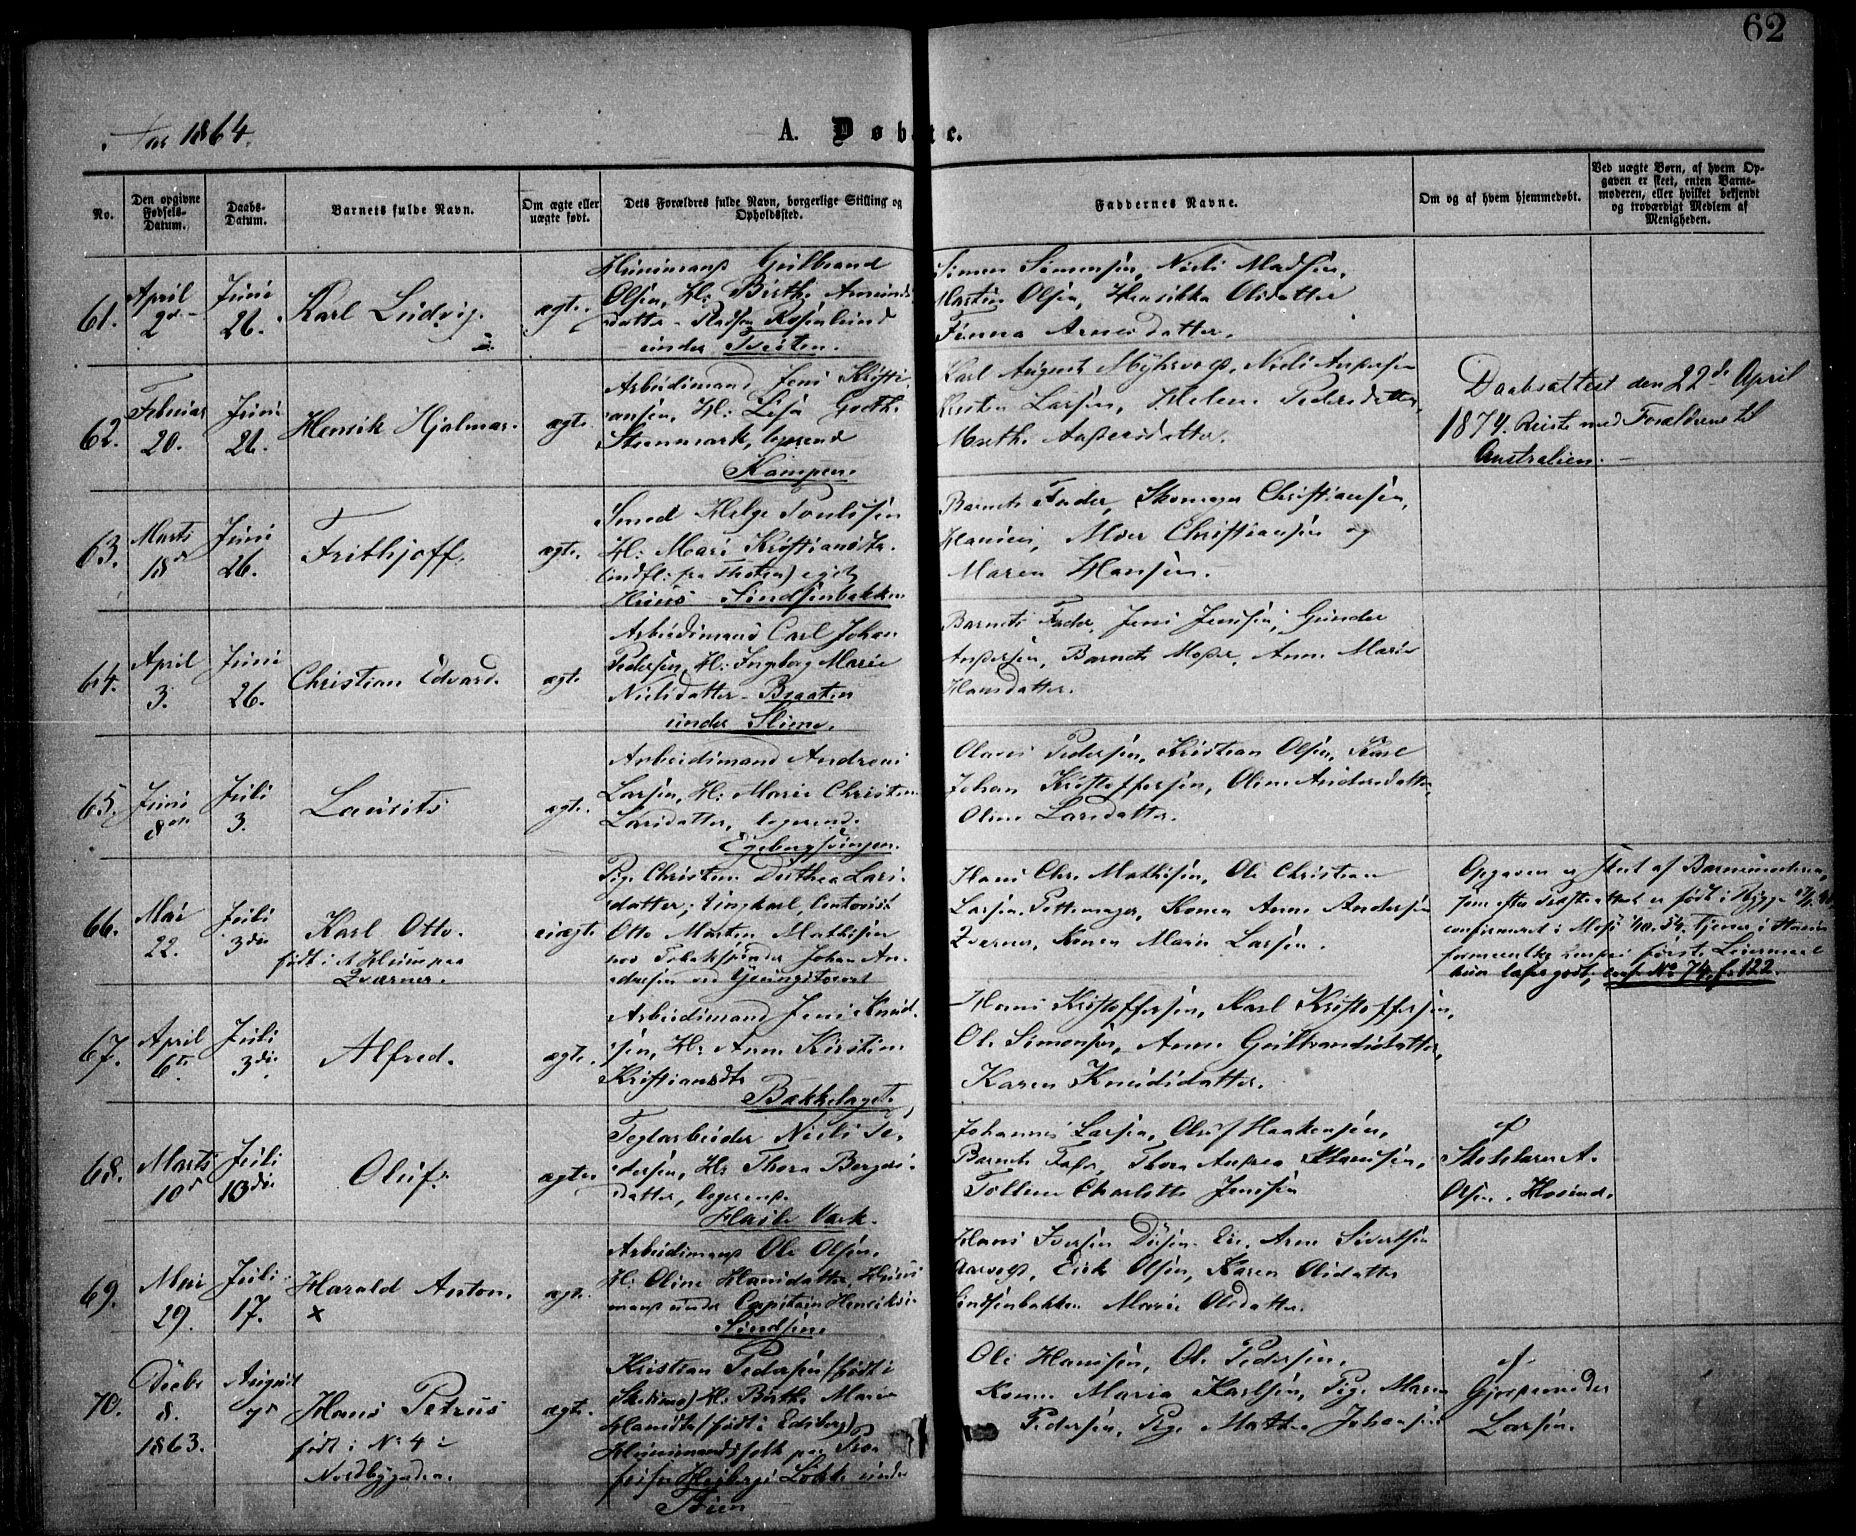 62
Aar 1864.
A. Døbte.
No.
Den opgivne Fødsels-Datum.
Daabs-Datum.
Barnets fulde Navn.
Om ægte eller uægte født.
Dets Forældres fulde Navn, borgerlige Stilling og Opholdssted.
Faddernes Navne.
Om og af hvem hjemmedøbt.
Ved uægte Børn, af hvem Opgaven er skeet, enten Barnemoderen, eller hvilket bekjendt og troværdigt Medlem af Menigheden.
61.
April 2
Juni 26.
Karl Ludvig.
ægte.
Huusmand Gulbrand
Olsen, H: Birthe Amunds
datter - Pladsen Rosenlund
under Tveten.
Simen Simensen, Niels Madsen,
Martin Olsen, Henrikka Olsdatter
Arnesdatter.
62.
Februar 20.
Juni 26.
Henrik Hjalmar.
ægte.
Arbeidsmand Jens Kristi
ansen, H: Lisa Grethe
Steenmark, logerend
Kampen.
Karl August Myhrvold, Niels Andersen
Larsen, Helene Pedersdatter,
Marthe Andersdatter.
Daabsattest den 22de April
1874. Reist med Forældrene til
Australien.
63.
Marts 18de
Juni 26.
Frithjoff.
ægte.
Smed Helge Poulsen
H: Mari Kristiansdtr
(indfl: fra Thoten) eget
Huus Sindsenbakken
Barnets Fader, Skomager Christiansen,
Hansen, Moer Christiansen og
Maren Hansen.
64.
April 3.
Juni 26.
Christian Edvard.
ægte
Arbeidsmand Carl Johan
Pedersen, H: Ingeborg Marie
Nielsdatter - Braaten
under
Barnets Fader, Jens Jensen, Gunder
Andersen, Barnets Moder, Anne Marie
Hansdatter.
65.
Juni 8de
Juli 3.
Laurits
ægte.
Arbeidsmand Andreas
Larsen, H: Marie Christine
Larsdatter, logerend.
Egebergsvingen.
Olaves Pedersen, Kristian Olsen, Karl
Johan Kristoffersen, Oline Andersdatter,
Oline Larsdatter.
66.
Mai 22.
Juli 3die
Karl Otto.
født i
Qværner.
uægte
Pige Christine Dorthea Lars
datter; Ungkarl, Contorist
Otto Morten Mathisen
hos Tobaksspinder Johan An
dresen ved Youngstorvet
Hans Chr. Mathisen, Ole Christian
Larsen Pottemager, Konen Anne Andersen
Qværner, Konen Marie Larsen.
Opgaven er skeet af Barnemoderen,
som efter Præsteattest er født i Rygge
confirmeret i Moss
No. 74, f. 122.
67.
April 6te
Juli 3die
Alfred.
ægte.
Arbeidsmand Jens Knud
sen, H: Anne Kirstine
Kristiansdtr
Bækkelaget.
Hans Kristoffersen, Karl Kristoffersen,
Ole Simensen, Anne Gulbrandsdatter,
Karen Knudsdatter.
68.
Marts 10de
Juli 10de
Oluf.
ægte
Teglarbeider Niels Pe
dersen, H: Thora Bergers
datter, logerend.
Hasle Værk.
Johannes Larsen, Oluf Haakensen,
Barnets Fader, Thora Andrea Hansen,
Charlotte Jensen
af
A.
Olsen, Hovind.
69.
Mai 29.
Juli 17.
Harald Anton.
×
ægte.
Arbeidsmand Ole Olsen,
H: Oline Hansdatter, Huus
mand under Capitain Henriksens
Sindsen.
Hans Iversen Arne Sivertsen
Aarvold, Eirik Olsen, Karen Olsdatter
Sindsenbakken Marie Olsdatter.
70.
Decbr 8. 1863.
August 7de
Hans Petrus
født i No 4 i
Nordbygaden.
ægte.
Kristian Pedersen (født i
Skedsmo) H: Birthe Marie
Hansdtr (født i Edsberg)
Huusmandsfolk paa Pro
fessor Heibergs Løkke under
Ole Hansen, Ole Pedersen,
Konen Maria Karlsen, Pige Maren
Pedersen, Pige Mathea Johansen
af
Gjordemoder
Larsen.